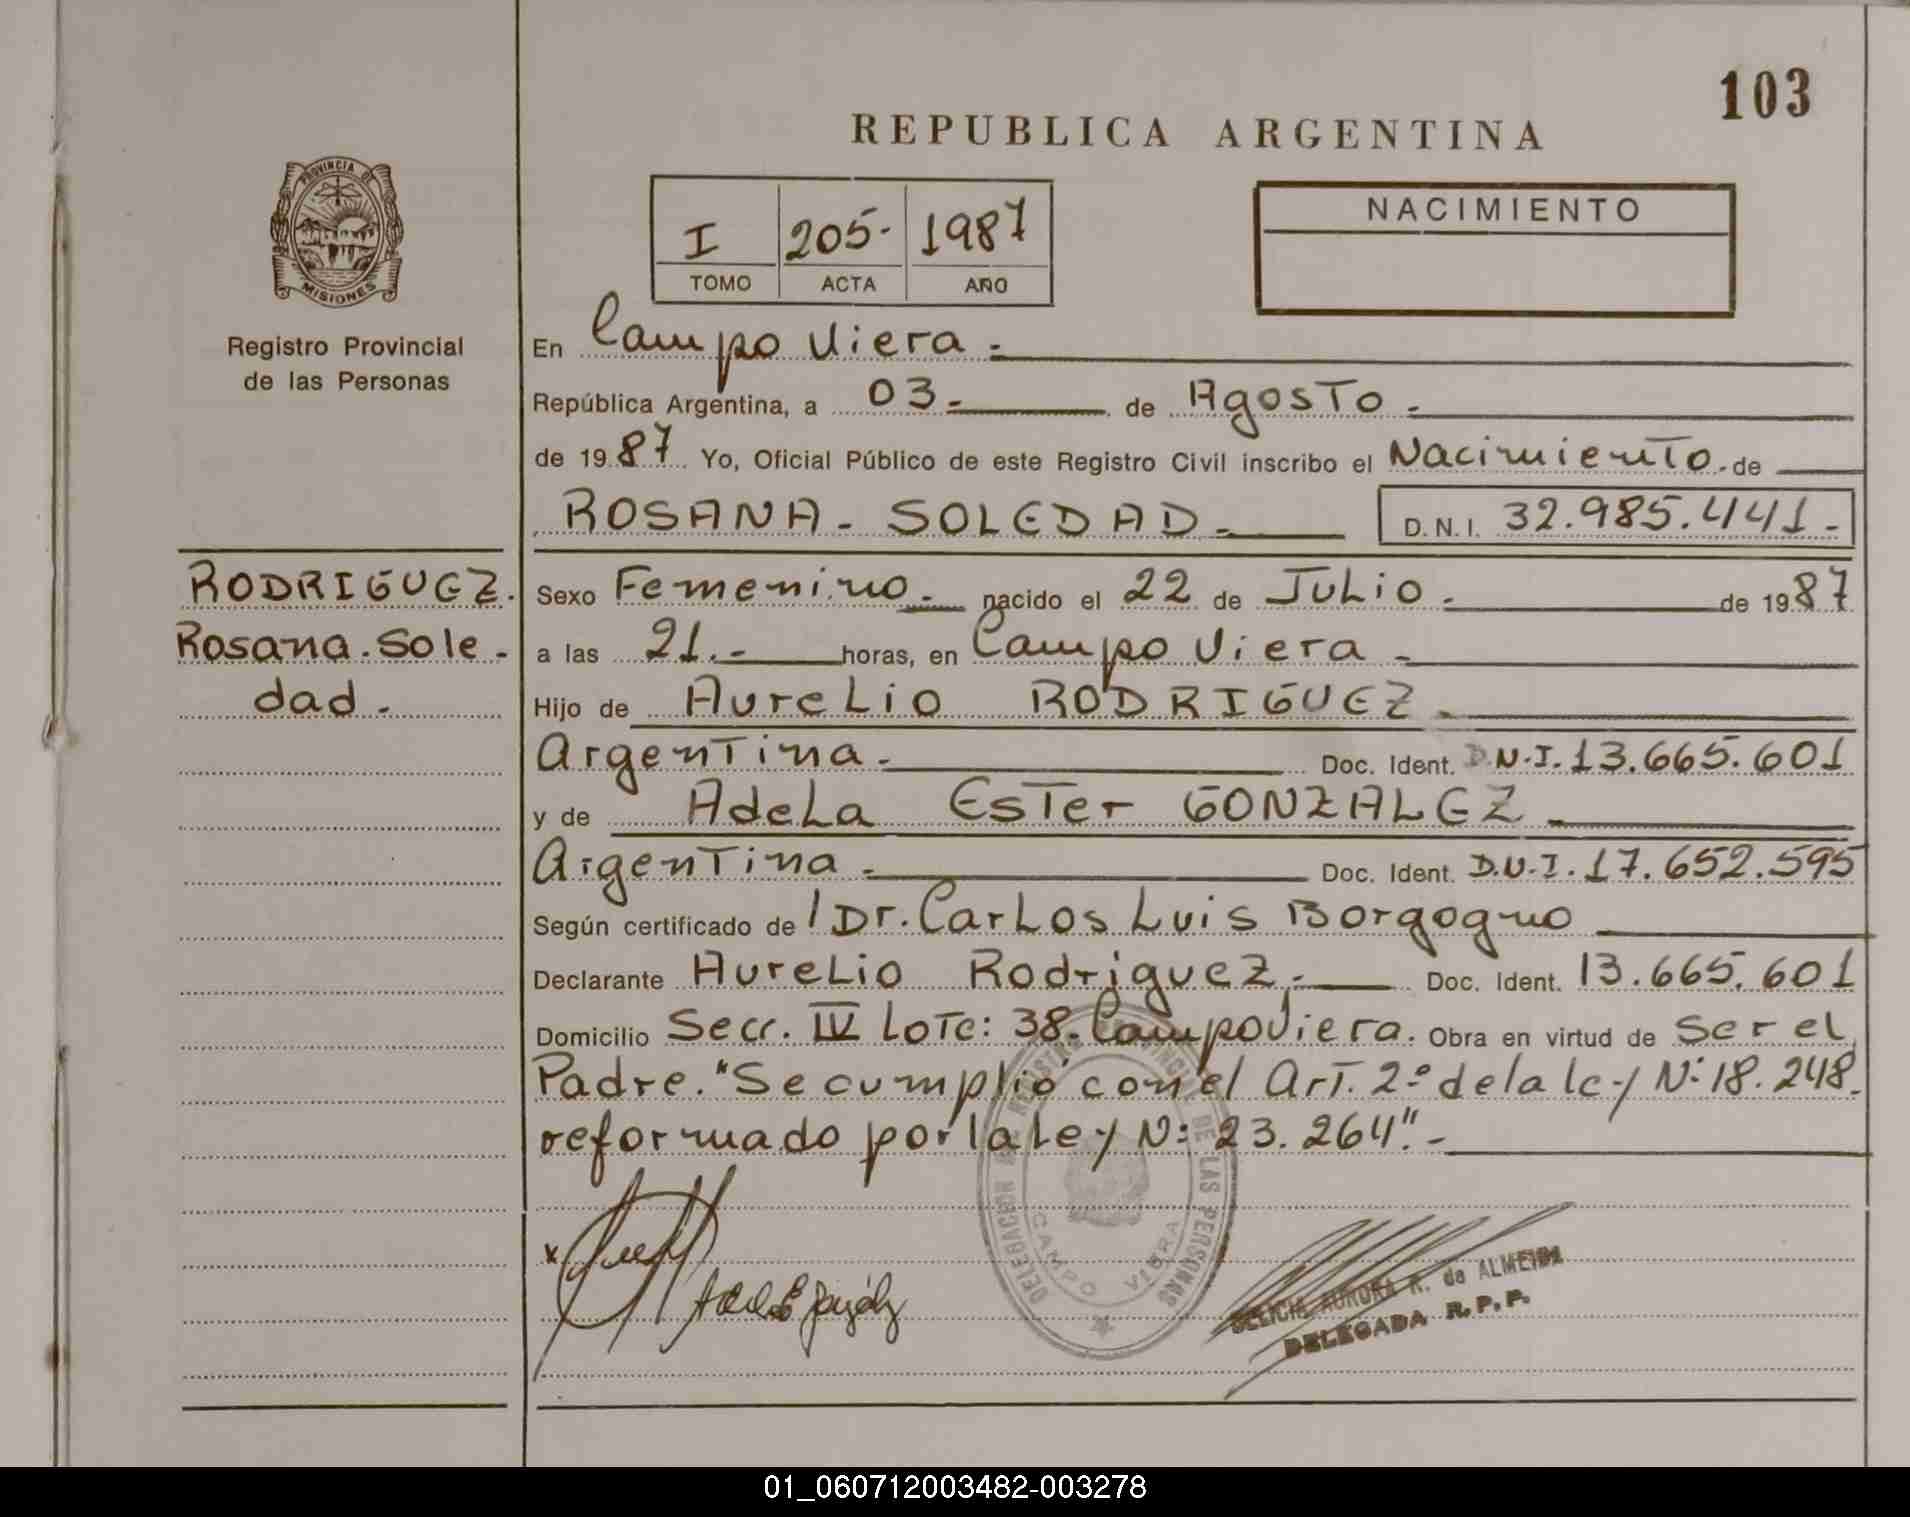 103
REPUBLICA ARGENTINA
PROVINCIA DE
MISIONES
Registro Provincial
de las Personas
I 205- 1987
TOMO ACTA AÑO
NACIMIENTO
En Campo Viera.
República Argentina, a 03- de Agosto.
de 1987 Yo, Oficial Público de este Registro Civil inscribo el Nacimiento de
ROSANA - SOLEDAD - D.N.I. 32.985.441-
RODRIGUEZ.
Rosana. Sole-
dad.
Sexo Femenino. nacido el 22 de Julio. de 1987
a las 21.- horas, en Campo Viera -
Hijo de Aurelio RODRIGUEZ.
Argentina. Doc. Ident. D.N.I. 13.665.601
y de Adela Ester GONZALEZ
Argentina. Doc. Ident. D.N.I. 17.652.595
Según certificado de Dr. Carlos Luis Borgogno
Declarante Aurelio Rodriguez.- Doc. Ident. 13.665.601
Domicilio Secc. IV Lote: 38- Campo Viera. Obra en virtud de Ser el
Padre. "Se cumplio con el Art. 2º de la ley Nº 18.248.
reformado por la ley Nº 23.264".-
DELEGACION DEL REGISTRO PROVINCIAL DE LAS PERSONAS
CAMPO VIERA
DELICIA AURORA R. de ALMEIDA
DELEGADA R.P.P.
01_060712003482-003278